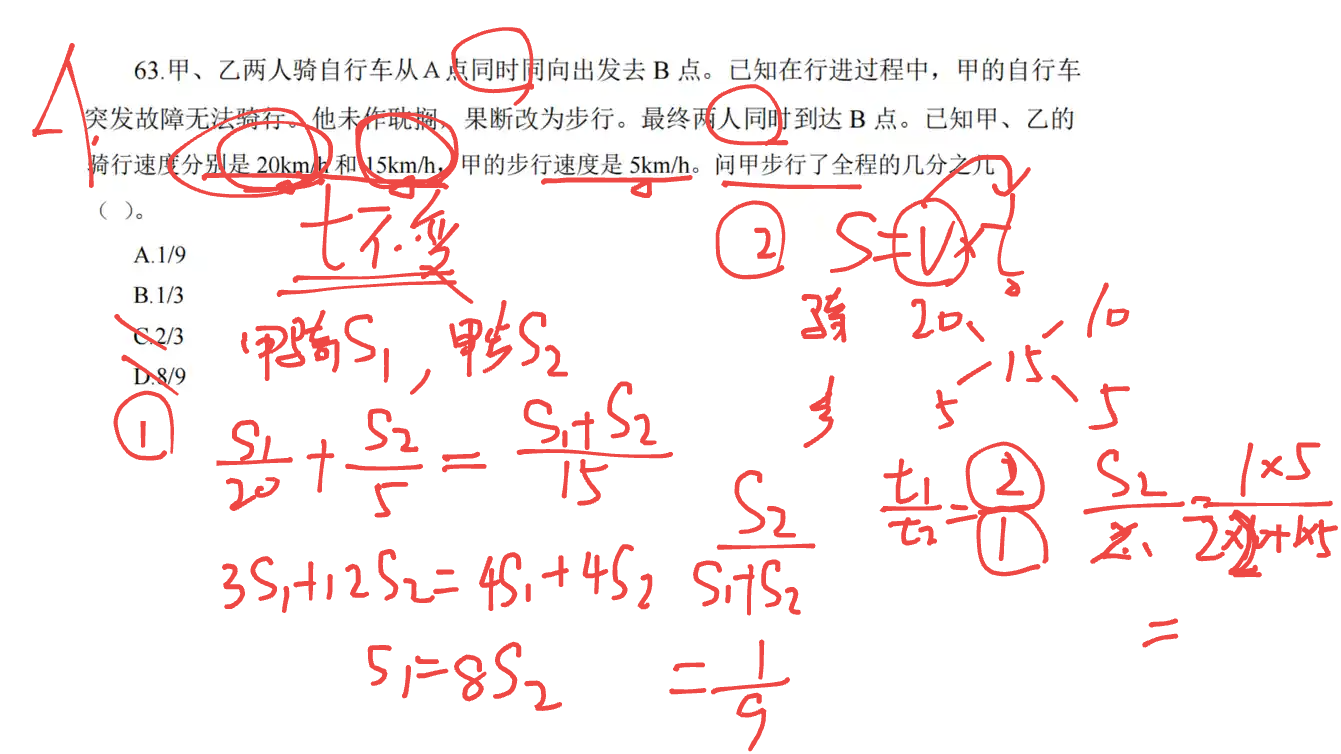 63.甲、乙两人骑自行车从A点同时同向出发去 B 点。已知在行进过程中，甲的自行车
突发故障无法骑行。他未作耽搁，果断改为步行。最终两人同时到达 B 点。已知甲、乙的
骑行速度分别是 20km/h 和 15km/h，甲的步行速度是 5km/h。问甲步行了全程的几分之几
（ ）。
A.1/9
B.1/3
C.2/3
D.8/9
A.
t不变
甲骑S1，甲步S2
①
S1/20 + S2/5 = (S1+S2)/15
3S1+12S2=4S1+4S2
S1=8S2
S2/(S1+S2)
=1/9
② S=V×t
骑 20 10
15
步 5 5
t1/t2=2/1
=